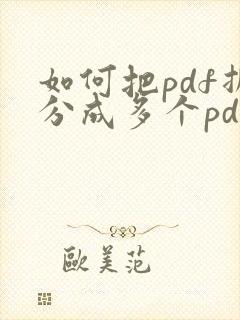 如何把pdf拆
分成多个pd
欧美范